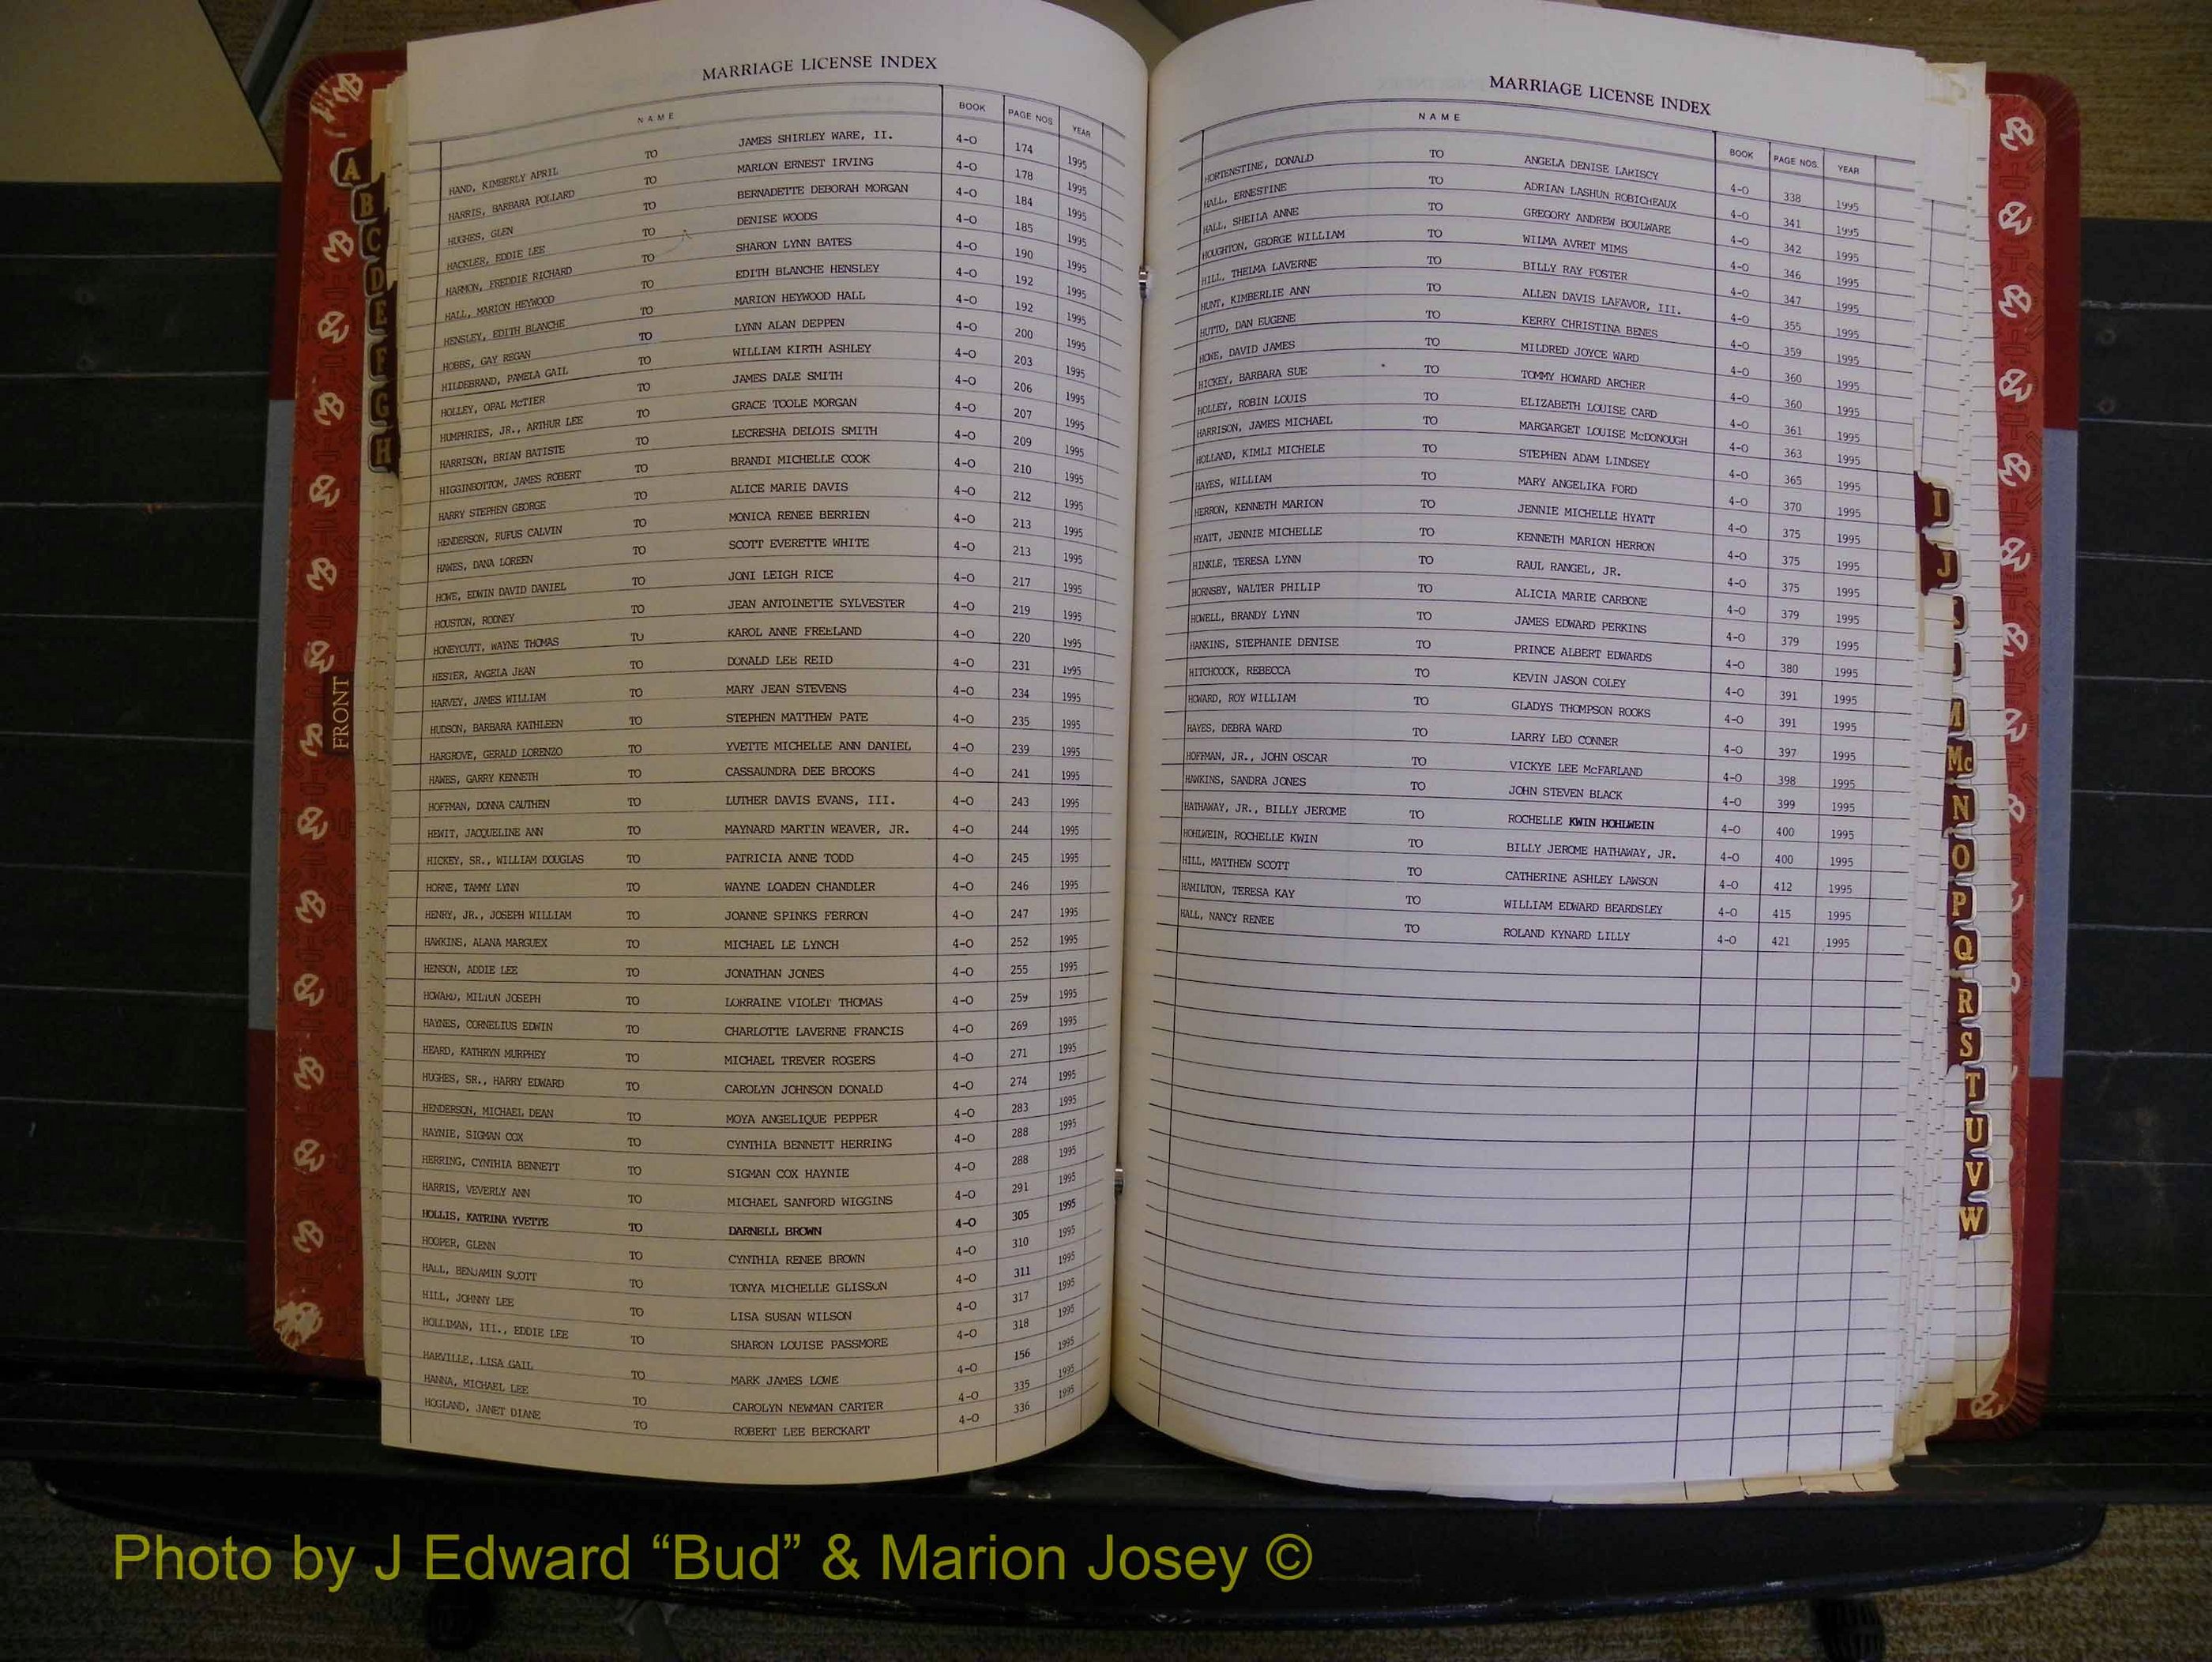 MARRIAGE LICENSE INDEX
NAME BOOK PAGE NOS YEAR
HAND, KIMBERLY APRIL TO JAMES SHIRLEY WARE, II. 4-O 174 1995
HARRIS, BARBARA POLLARD TO MARLON ERNEST IRVING 4-O 178 1995
HUGHES, GLEN TO BERNADETTE DEBORAH MORGAN 4-O 184 1995
HACKLER, EDDIE LEE TO DENISE WOODS 4-O 185 1995
HARMON, FREDDIE RICHARD TO SHARON LYNN BATES 4-O 190 1995
HALL, MARION HEYWOOD TO EDITH BLANCHE HENSLEY 4-O 192 1995
HENSLEY, EDITH BLANCHE TO MARION HEYWOOD HALL 4-O 192 1995
HOBBS, GAY REGAN TO LYNN ALAN DEPPEN 4-O 200 1995
HILDEBRAND, PAMELA GAIL TO WILLIAM KIRTH ASHLEY 4-O 203 1995
HOLLEY, OPAL McTIER TO JAMES DALE SMITH 4-O 206 1995
HUMPHRIES, JR., ARTHUR LEE TO GRACE TOOLE MORGAN 4-O 207 1995
HARRISON, BRIAN BATISTE TO LECRESHA DELOIS SMITH 4-O 209 1995
HIGGINBOTTOM, JAMES ROBERT TO BRANDI MICHELLE COOK 4-O 210 1995
HARRY STEPHEN GEORGE TO ALICE MARIE DAVIS 4-O 212 1995
HENDERSON, RUFUS CALVIN TO MONICA RENEE BERRIEN 4-O 213 1995
HAWES, DANA LOREEN TO SCOTT EVERETTE WHITE 4-O 213 1995
HOWE, EDWIN DAVID DANIEL TO JONI LEIGH RICE 4-O 217 1995
HOUSTON, RODNEY TO JEAN ANTOINETTE SYLVESTER 4-O 219 1995
HONEYCUTT, WAYNE THOMAS TO KAROL ANNE FREELAND 4-O 220 1995
HESTER, ANGELA JEAN TO DONALD LEE REID 4-O 231 1995
HARVEY, JAMES WILLIAM TO MARY JEAN STEVENS 4-O 234 1995
HUDSON, BARBARA KATHLEEN TO STEPHEN MATTHEW PATE 4-O 235 1995
HARGROVE, GERALD LORENZO TO YVETTE MICHELLE ANN DANIEL 4-O 239 1995
HAWES, GARRY KENNETH TO CASSAUNDRA DEE BROOKS 4-O 241 1995
HOFFMAN, DONNA CAUTHEN TO LUTHER DAVIS EVANS, III. 4-O 243 1995
HEWIT, JACQUELINE ANN TO MAYNARD MARTIN WEAVER, JR. 4-O 244 1995
HICKEY, SR., WILLIAM DOUGLAS TO PATRICIA ANNE TODD 4-O 245 1995
HORNE, TAMMY LYNN TO WAYNE LOADEN CHANDLER 4-O 246 1995
HENRY, JR., JOSEPH WILLIAM TO JOANNE SPINKS FERRON 4-O 247 1995
HAWKINS, ALANA MARGUEX TO MICHAEL LE LYNCH 4-O 252 1995
HENSON, ADDIE LEE TO JONATHAN JONES 4-O 255 1995
HOWARD, MILTON JOSEPH TO LORRAINE VIOLET THOMAS 4-O 259 1995
HAYNES, CORNELIUS EDWIN TO CHARLOTTE LAVERNE FRANCIS 4-O 269 1995
HEARD, KATHRYN MURPHEY TO MICHAEL TREVER ROGERS 4-O 271 1995
HUGHES, SR., HARRY EDWARD TO CAROLYN JOHNSON DONALD 4-O 274 1995
HENDERSON, MICHAEL DEAN TO MOYA ANGELIQUE PEPPER 4-O 283 1995
HAYNIE, SIGMAN COX TO CYNTHIA BENNETT HERRING 4-O 288 1995
HERRING, CYNTHIA BENNETT TO SIGMAN COX HAYNIE 4-O 288 1995
HARRIS, VEVERLY ANN TO MICHAEL SANFORD WIGGINS 4-O 291 1995
HOLLIS, KATRINA YVETTE TO DARNELL BROWN 4-O 305 1995
HOOPER, GLENN TO CYNTHIA RENEE BROWN 4-O 310 1995
HALL, BENJAMIN SCOTT TO TONYA MICHELLE GLISSON 4-O 311 1995
HILL, JOHNNY LEE TO LISA SUSAN WILSON 4-O 317 1995
HOLLIMAN, III., EDDIE LEE TO SHARON LOUISE PASSMORE 4-O 318 1995
HARVILLE, LISA GAIL TO MARK JAMES LOWE 4-O 156 1995
HANNA, MICHAEL LEE TO CAROLYN NEWMAN CARTER 4-O 335 1995
HOGLAND, JANET DIANE TO ROBERT LEE BERCKART 4-O 336 1995
MARRIAGE LICENSE INDEX
NAME BOOK PAGE NOS. YEAR
HORTENSTINE, DONALD TO ANGELA DENISE LARISCY 4-O 338 1995
HALL, ERNESTINE TO ADRIAN LASHUN ROBICHEAUX 4-O 341 1995
HALL, SHEILA ANNE TO GREGORY ANDREW BOULWARE 4-O 342 1995
HOUGHTON, GEORGE WILLIAM TO WILMA AVRET MIMS 4-O 346 1995
HILL, THELMA LAVERNE TO BILLY RAY FOSTER 4-O 347 1995
HUNT, KIMBERLIE ANN TO ALLEN DAVIS LAFAVOR, III. 4-O 355 1995
HUTTO, DAN EUGENE TO KERRY CHRISTINA BENES 4-O 359 1995
HOWE, DAVID JAMES TO MILDRED JOYCE WARD 4-O 360 1995
HICKEY, BARBARA SUE TO TOMMY HOWARD ARCHER 4-O 360 1995
HOLLEY, ROBIN LOUIS TO ELIZABETH LOUISE CARD 4-O 361 1995
HARRISON, JAMES MICHAEL TO MARGARGET LOUISE McDONOUGH 4-O 363 1995
HOLLAND, KIMLI MICHELE TO STEPHEN ADAM LINDSEY 4-O 365 1995
HAYES, WILLIAM TO MARY ANGELIKA FORD 4-O 370 1995
HERRON, KENNETH MARION TO JENNIE MICHELLE HYATT 4-O 375 1995
HYATT, JENNIE MICHELLE TO KENNETH MARION HERRON 4-O 375 1995
HINKLE, TERESA LYNN TO RAUL RANGEL, JR. 4-O 375 1995
HORNSBY, WALTER PHILIP TO ALICIA MARIE CARBONE 4-O 379 1995
HOWELL, BRANDY LYNN TO JAMES EDWARD PERKINS 4-O 379 1995
HANKINS, STEPHANIE DENISE TO PRINCE ALBERT EDWARDS 4-O 380 1995
HITCHCOCK, REBECCA TO KEVIN JASON COLEY 4-O 391 1995
HOWARD, ROY WILLIAM TO GLADYS THOMPSON ROOKS 4-O 391 1995
HAYES, DEBRA WARD TO LARRY LEO CONNER 4-O 397 1995
HOFFMAN, JR., JOHN OSCAR TO VICKYE LEE McFARLAND 4-O 398 1995
HAWKINS, SANDRA JONES TO JOHN STEVEN BLACK 4-O 399 1995
HATHAWAY, JR., BILLY JEROME TO ROCHELLE KWIN HOHLWEIN 4-O 400 1995
HOHLWEIN, ROCHELLE KWIN TO BILLY JEROME HATHAWAY, JR. 4-O 400 1995
HILL, MATTHEW SCOTT TO CATHERINE ASHLEY LAWSON 4-O 412 1995
HAMILTON, TERESA KAY TO WILLIAM EDWARD BEARDSLEY 4-O 415 1995
HALL, NANCY RENEE TO ROLAND KYNARD LILLY 4-O 421 1995
A
B
C
D
E
F
G
H
FRONT
I
J
M
Mc
N
O
P
Q
R
S
T
U
V
W
Photo by J Edward “Bud” & Marion Josey ©